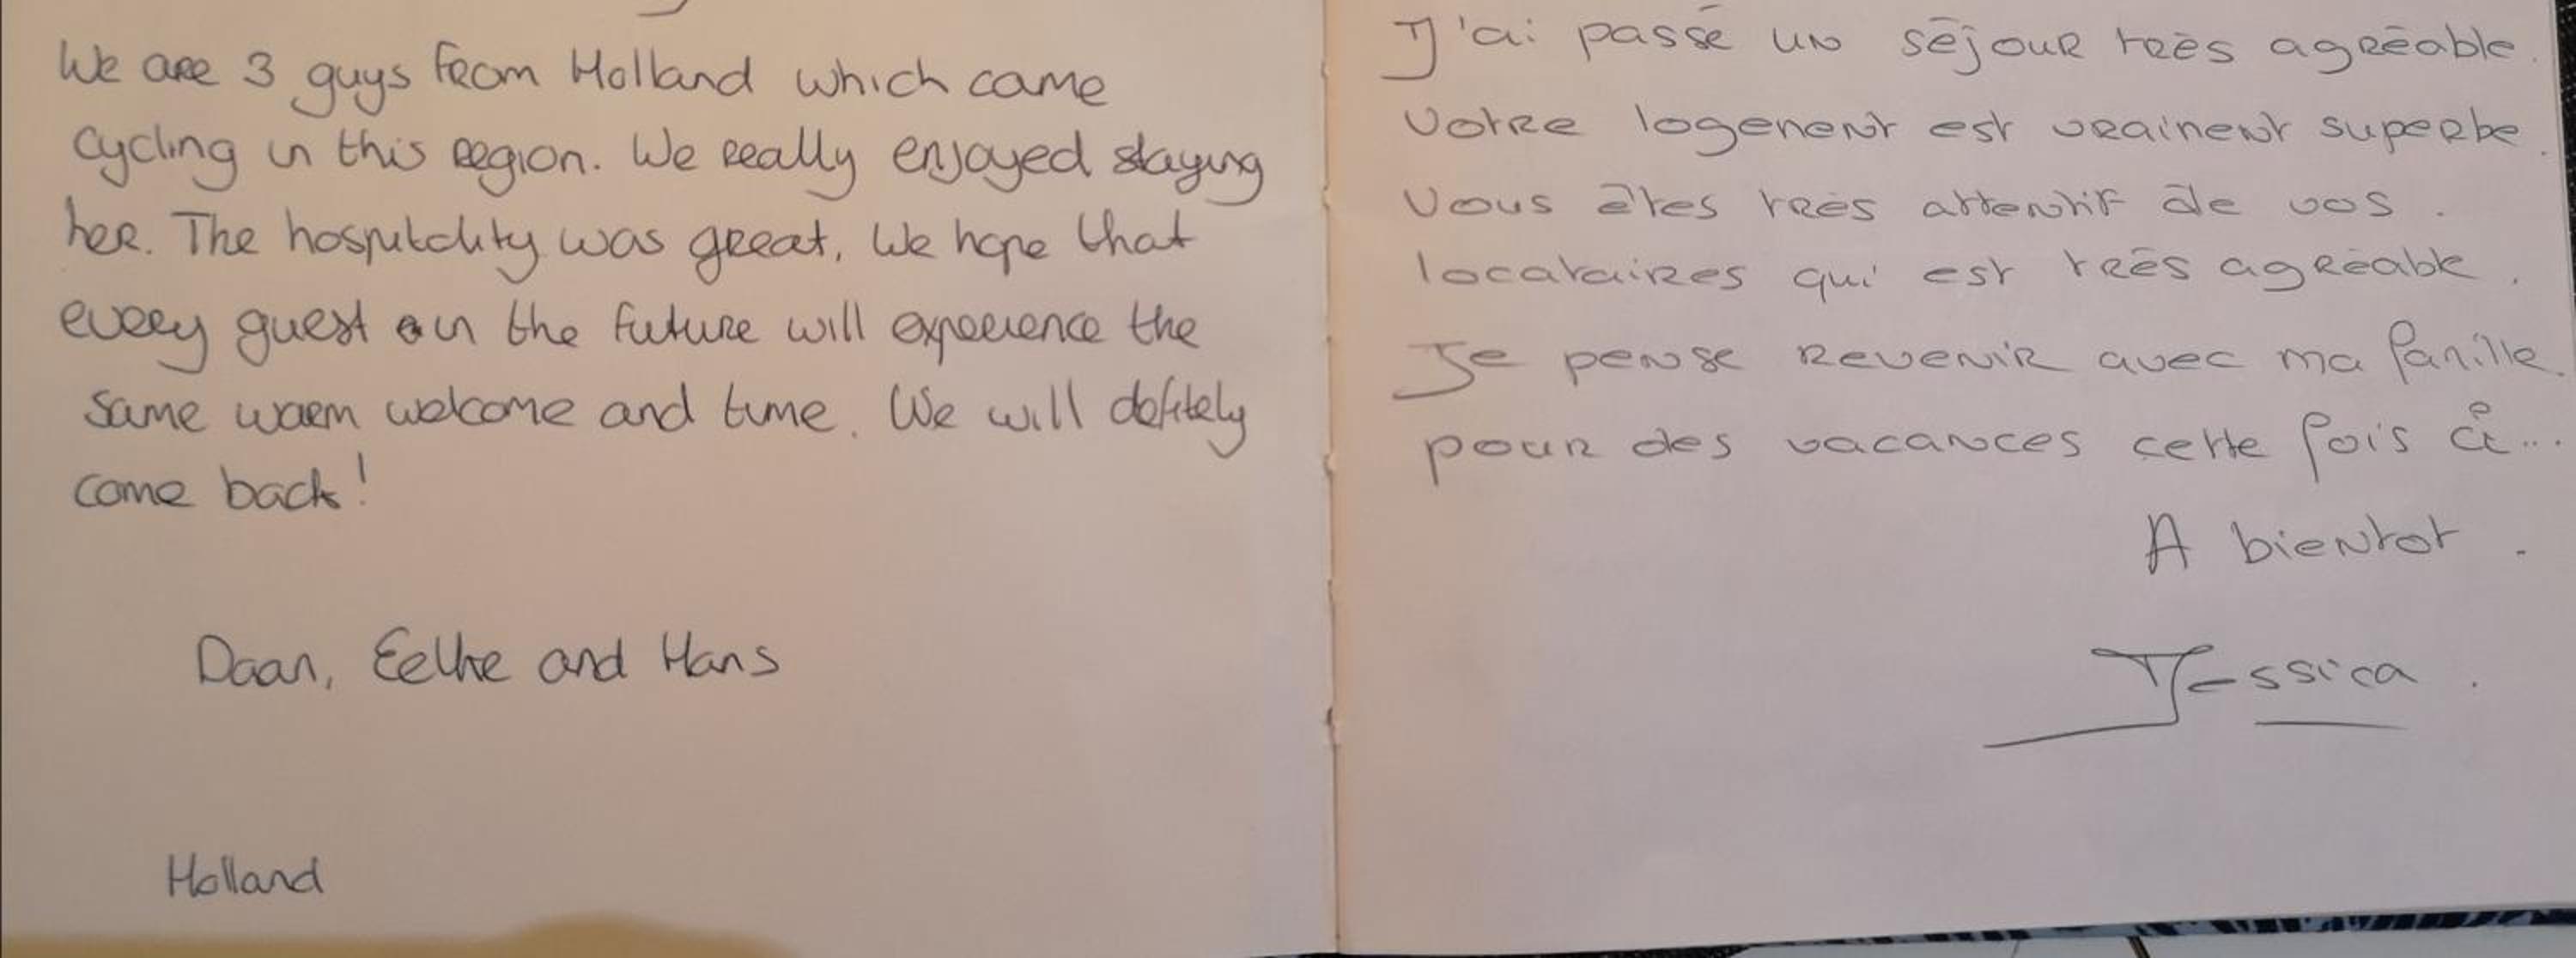 We are 3 guys from Holland which came
cycling in this region. We really enjoyed staying
her. The hospitality was great, We hope that
every guest in the future will experience the
same warm welcome and time. We will defitely
come back!
Daan, Eelke and Hans
Holland
J'ai passé un séjour très agréable.
Votre logement est vraiment superbe.
Vous êtes très attentif de vos.
locataires qui est très agréable.
Je pense revenir avec ma famille.
pour des vacances cette fois ci...
A bientot.
Jessica.